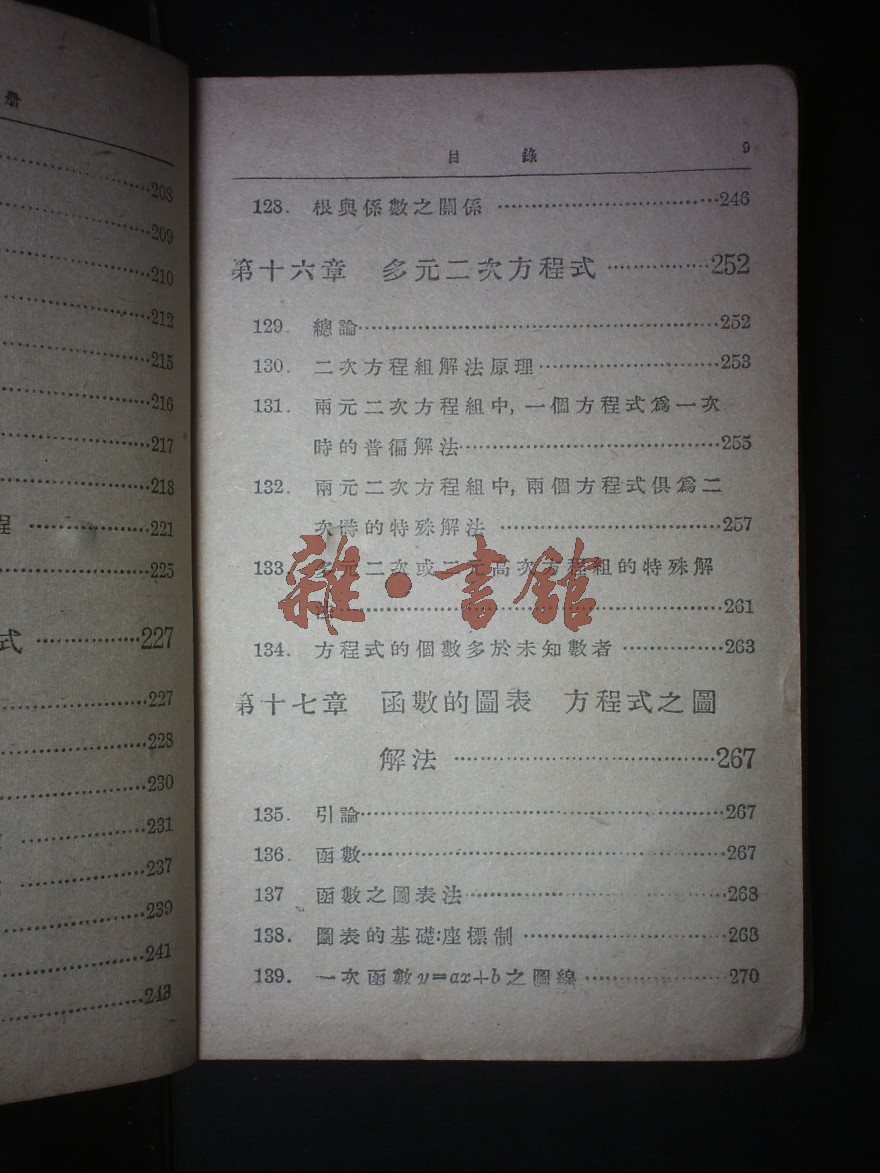 册
208
209
210
212
215
216
217
218
程 221
225
式 227
227
228
230
231
237
239
241
243
目 錄 9
128. 根與係數之關係 ……………………………246
第十六章 多元二次方程式 ……………252
129. 總論………………………………………252
130. 二次方程組解法原理……………………253
131. 兩元二次方程組中,一個方程式爲一次
時的普徧解法………………………………255
132. 兩元二次方程組中,兩個方程式俱爲二
次時的特殊解法 …………………………257
133. 多元二次或二元高次方程組的特殊解
法……………………………………………261
134. 方程式的個數多於未知數者 ……………263
第十七章 函數的圖表 方程式之圖
解法 ………………………………267
135. 引論………………………………………267
136. 函數………………………………………267
137 函數之圖表法……………………………268
138. 圖表的基礎:座標制 ………………………268
139. 一次函數y=ax+b之圖線 ………………270
雜·書館